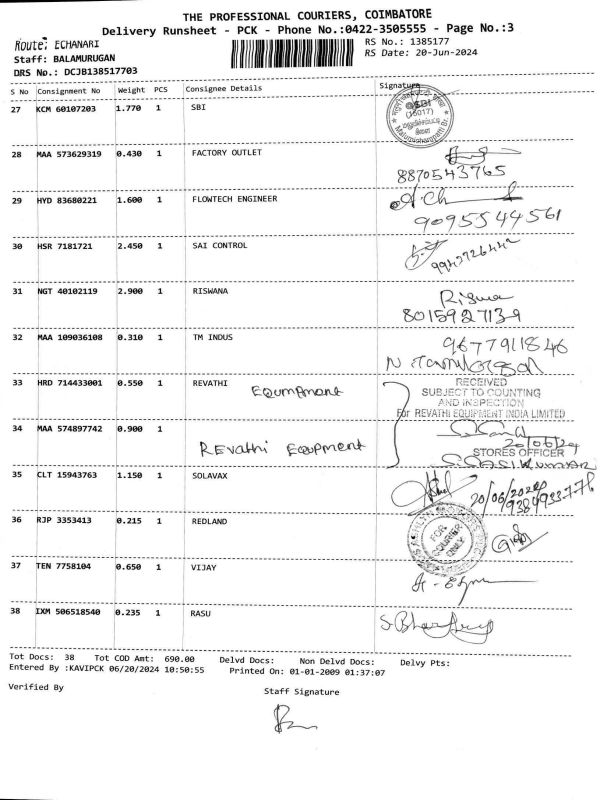 THE PROFESSIONAL COURIERS, COIMBATORE
Delivery Runsheet - PCK - Phone No.:0422-3505555 - Page No.:3
Route: ECHANARI
RS No.: 1385177
Staff: BALAMURUGAN
RS Date: 20-Jun-2024
DRS No.: DCJB138517703
S No Consignment No Weight PCS Consignee Details Signature
27 KCM 60107203 1.770 1 SBI
SBI
(15017)
28 MAA 573629319 0.430 1 FACTORY OUTLET
8870543765
29 HYD 83680221 1.600 1 FLOWTECH ENGINEER
9095544561
30 HSR 7181721 2.450 1 SAI CONTROL
31 NGT 40102119 2.900 1 RISWANA
8015927139
32 MAA 109036108 0.310 1 TM INDUS
9677911846
33 HRD 714433001 0.550 1 REVATHI Equmpmant
RECEIVED
SUBJECT TO COUNTING
AND INSPECTION
For REVATHI EQUIPMENT INDIA LIMITED
34 MAA 574897742 0.900 1
REvathi Eqopment
20/06/24
STORES OFFICER
S. SASIKUMAR
35 CLT 15943763 1.150 1 SOLAVAX
36 RJP 3353413 0.215 1 REDLAND
FOR
COURIER
ONLY
37 TEN 7758104 0.650 1 VIJAY
38 IXM 506518540 0.235 1 RASU
Tot Docs: 38 Tot COD Amt: 690.00 Delvd Docs: Non Delvd Docs: Delvy Pts:
Entered By :KAVIPCK 06/20/2024 10:50:55 Printed On: 01-01-2009 01:37:07
Verified By
Staff Signature